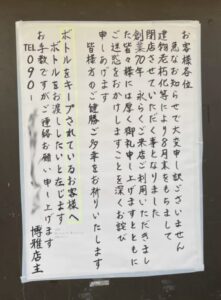 お客様各位
急なお知らせで大変申し訳ございません
建物老朽化等により8月末をもちまして
閉店させていただく事となりました
創業70年 永らくご来店ご利用いただきまし
た皆々様には厚く御礼申し上げますとともに
ご迷惑をおかけしますことを深くお詫び
申しあげます
皆様方のご健勝ご多幸をお祈りいたします
ボトルをキープされているお客様へ
ボトルをお渡ししたいと存じます
お手数ですがご連絡お願い申し上げます
TEL090-
博雅店主